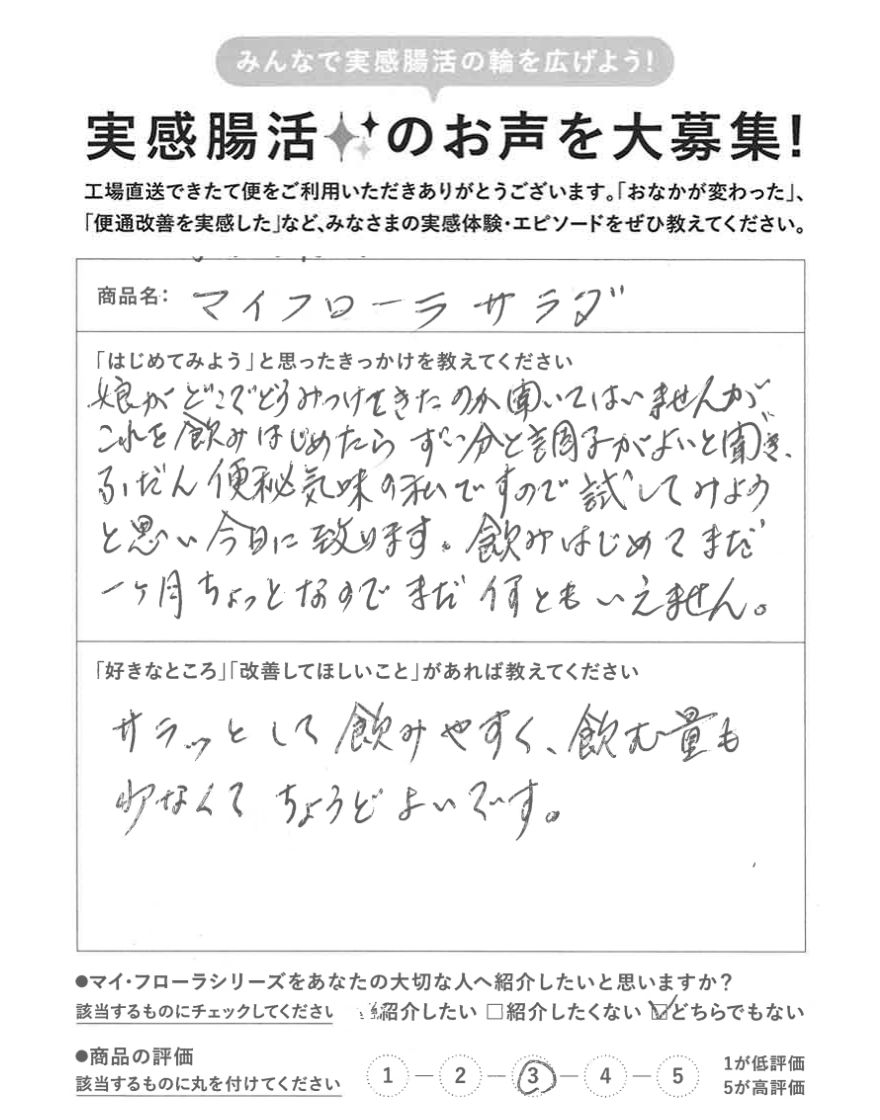 みんなで実感腸活の輪を広げよう!
実感腸活のお声を大募集!
工場直送できたて便をご利用いただきありがとうございます。「おなかが変わった」、
「便通改善を実感した」など、みなさまの実感体験・エピソードをぜひ教えてください。
商品名: マイフローラサラダ
「はじめてみよう」と思ったきっかけを教えてください
娘がどこでどうみつけてきたのか聞いてはいませんが
これを飲みはじめたら ずい分と調子がよいと聞き、
ふだん便秘気味の私ですので試してみよう
と思い今日に致ります。飲みはじめてまだ
一ヶ月ちょっとなのでまだ何ともいえません。
「好きなところ」「改善してほしいこと」があれば教えてください
サラッとして飲みやすく、飲む量も
少なくてちょうどよいです。
●マイ・フローラシリーズをあなたの大切な人へ紹介したいと思いますか?
該当するものにチェックしてください 紹介したい □紹介したくない ☑どちらでもない
●商品の評価
該当するものに丸を付けてください 1 — 2 — 3 — 4 — 5
1が低評価
5が高評価